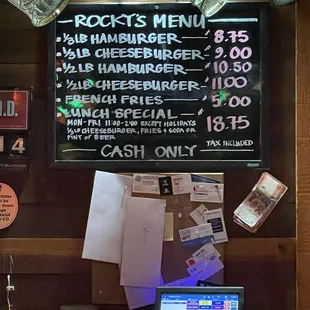 ROCKY'S MENU
1/3 LB HAMBURGER 8.75
1/3 LB CHEESEBURGER 9.00
1/2 LB HAMBURGER 10.50
1/2 LB CHEESEBURGER 11.00
FRENCH FRIES 5.00
LUNCH SPECIAL 18.75
MON-FRI 11:00-2:00 EXCEPT HOLIDAYS
1/2 LB CHEESEBURGER, FRIES & SODA OR
PINT OF BEER
TAX INCLUDED
CASH ONLY
I.D.
14